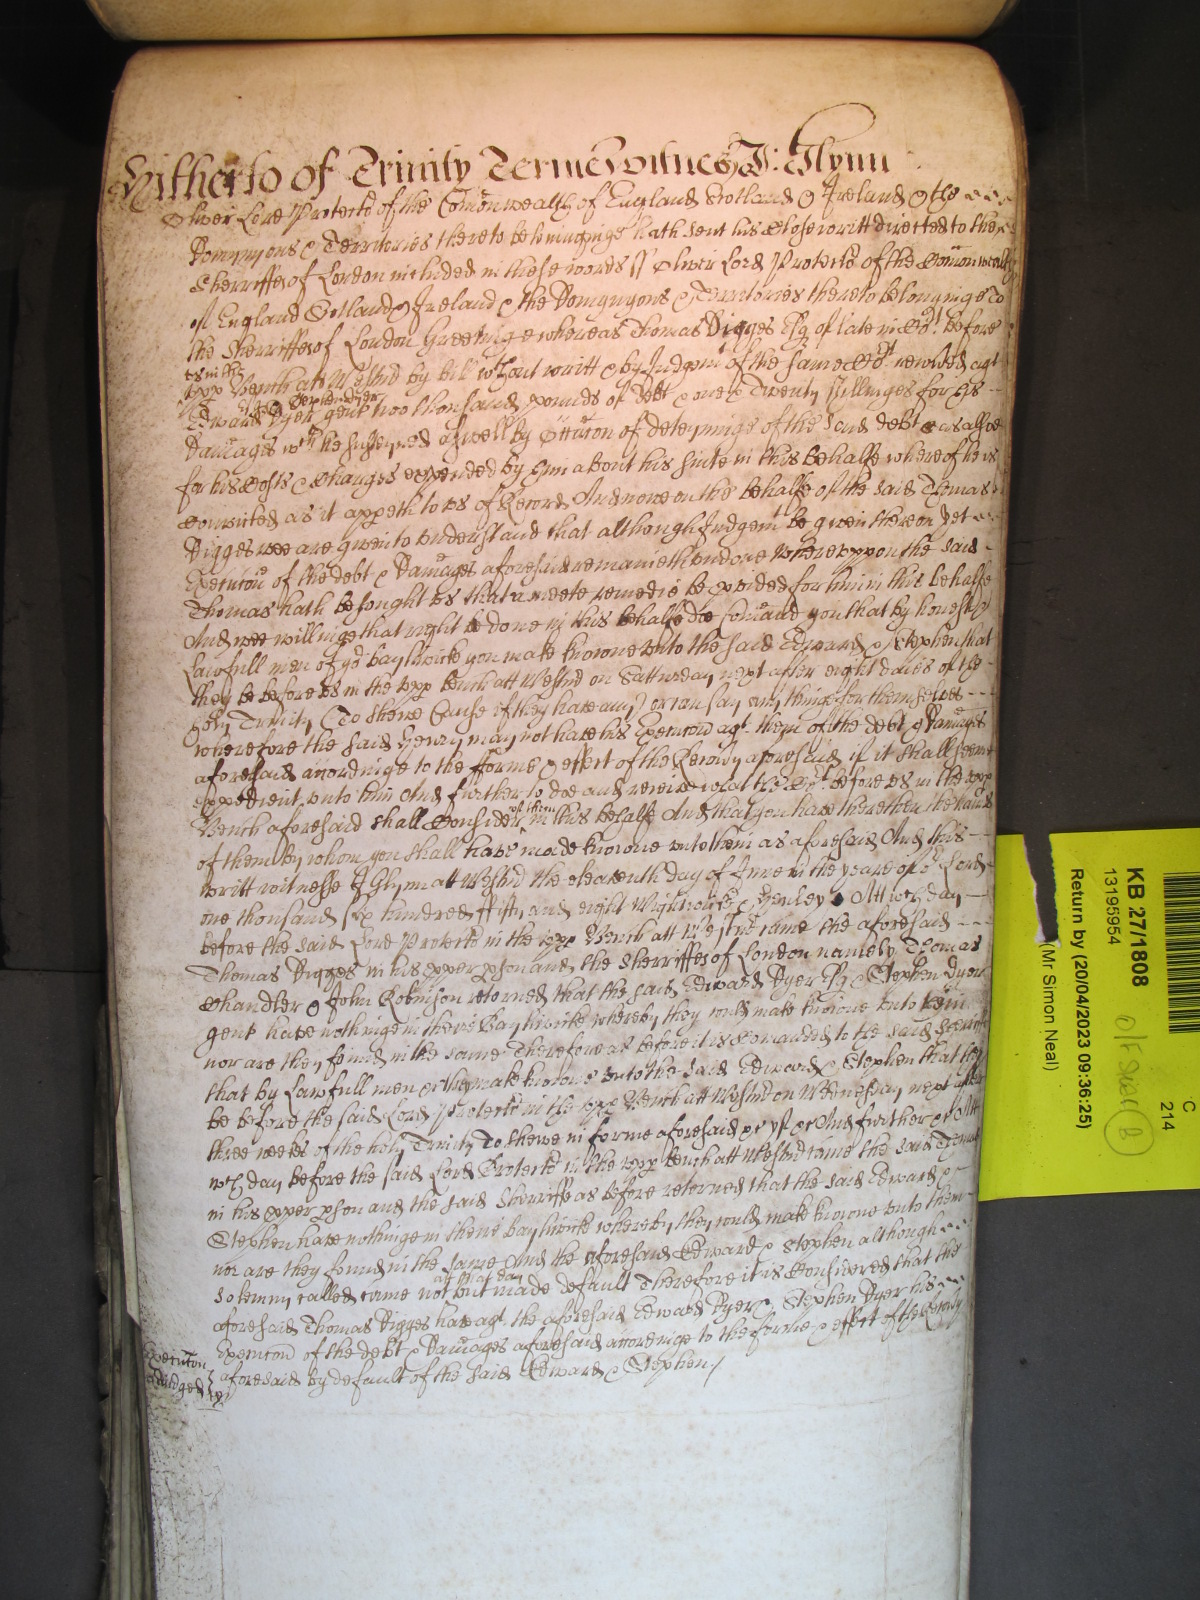 Hitherto of Trinity Terme Witnes J: Glynn
Oliver Lord Protector of the Comonwealth of England Scotland & Ireland & the
Domynyons & Territories thereto belonginge hath sent his Close writt directed to the
Sherriffes of London included in these words ss Oliver Lord Protector of the Comonwealth
of England Scotland & Ireland & the Domynyons & Territories thereto belonginge To
the Sherriffes of London Greetinge whereas Thomas Digges Esq of late in Cort before
us in the
upp Bench att Westmr by bill wthout writt & by Judgmt of the same Cort recoved agt
Edward Dyer gent two thousand pounds of debt & one & Twenty shillinges for his
Damages wch he susteyned aswell by occacon of deteyninge of the said debt as alsoe
for his Costs & Charges expended by him about his suite in this behalfe whereof he is
convicted as it appeth to us of Record And nowe on the behalfe of the said Thomas
Digges wee are given to understand that although Judgemt be given thereon yet
Execucon of the debt & Damages aforesaid remaineth undone Whereuppon the said
Thomas hath besought us that a meete remedie be pvided for him in this behalfe
And wee willinge that right be done in this behalfe doe Comand you that by honest &
Lawfull men of yor baylywicke you make knowne unto the said Edward & Stephen that
they be before us in the upp bench att Westmr on Satturday next after eight daies of the
holy Trinity (To shewe Cause if they have any) or can say any thinge for themselves
wherefore the said Henry may not have his Execucon agt them of the debt & Damages
aforesaid accordinge to the forme & effect of the Recovry aforesaid if it shall seeme
expedient unto him And further to doe and receive what the Cort before us in the upp
Bench aforesaid shall Consider of them in this behalfe And that you have there then the names
of them by whom you shall have made knowne unto them as aforesaid And this
writt witnesse J Glynn att Westmr the eleaventh day of June in the yeare of or Lord
one thousand six hundred fifty and eight Wightwicke & Henley Att wch day
before the said Lord Protector in the upp Bench att Westmr came the aforesaid
Thomas Digges in his pper pson and the Sherriffes of London namely Thomas
Chandler & John Robinson retorned that the said Edward Dyer Esq & Stephen Dyer
gent have nothinge in theire Baylywicke whereby they could make knowne unto them
nor are they found in the same Therefore as before it is Comanded to the said Sherriffes
that by Lawfull men &c they make knowne unto the said Edward & Stephen that they
be before the said Lord Protector in the upp Bench att Westmr on Wednesday next after
three weeks of the holy Trinity To shewe in forme aforesaid &c yf &c And further &c Att
wch day before the said Lord Protector in the upp bench att Westmr came the said Thomas
in his pper pson and the said Sherriffe as before retorned that the said Edward &
Stephen have nothinge in theire baylywicke whereby they could make knowne unto them
nor are they found in the same And the aforesaid Edward & Stephen although
att that day
solemny called came not but made default Therefore it is Considered that the
aforesaid Thomas Digges have agt the aforesaid Edward Dyer & Stephen Dyer his
Execucon of the debt & Damages aforesaid accordinge to the forme & effect of the Recovry
aforesaid by default of the said Edward & Stephen /
Execucon
Adiudged
KB 27/1808
13195954
Return by (20/04/2023 09:36:25)
(Mr Simon Neal)
C
214
B